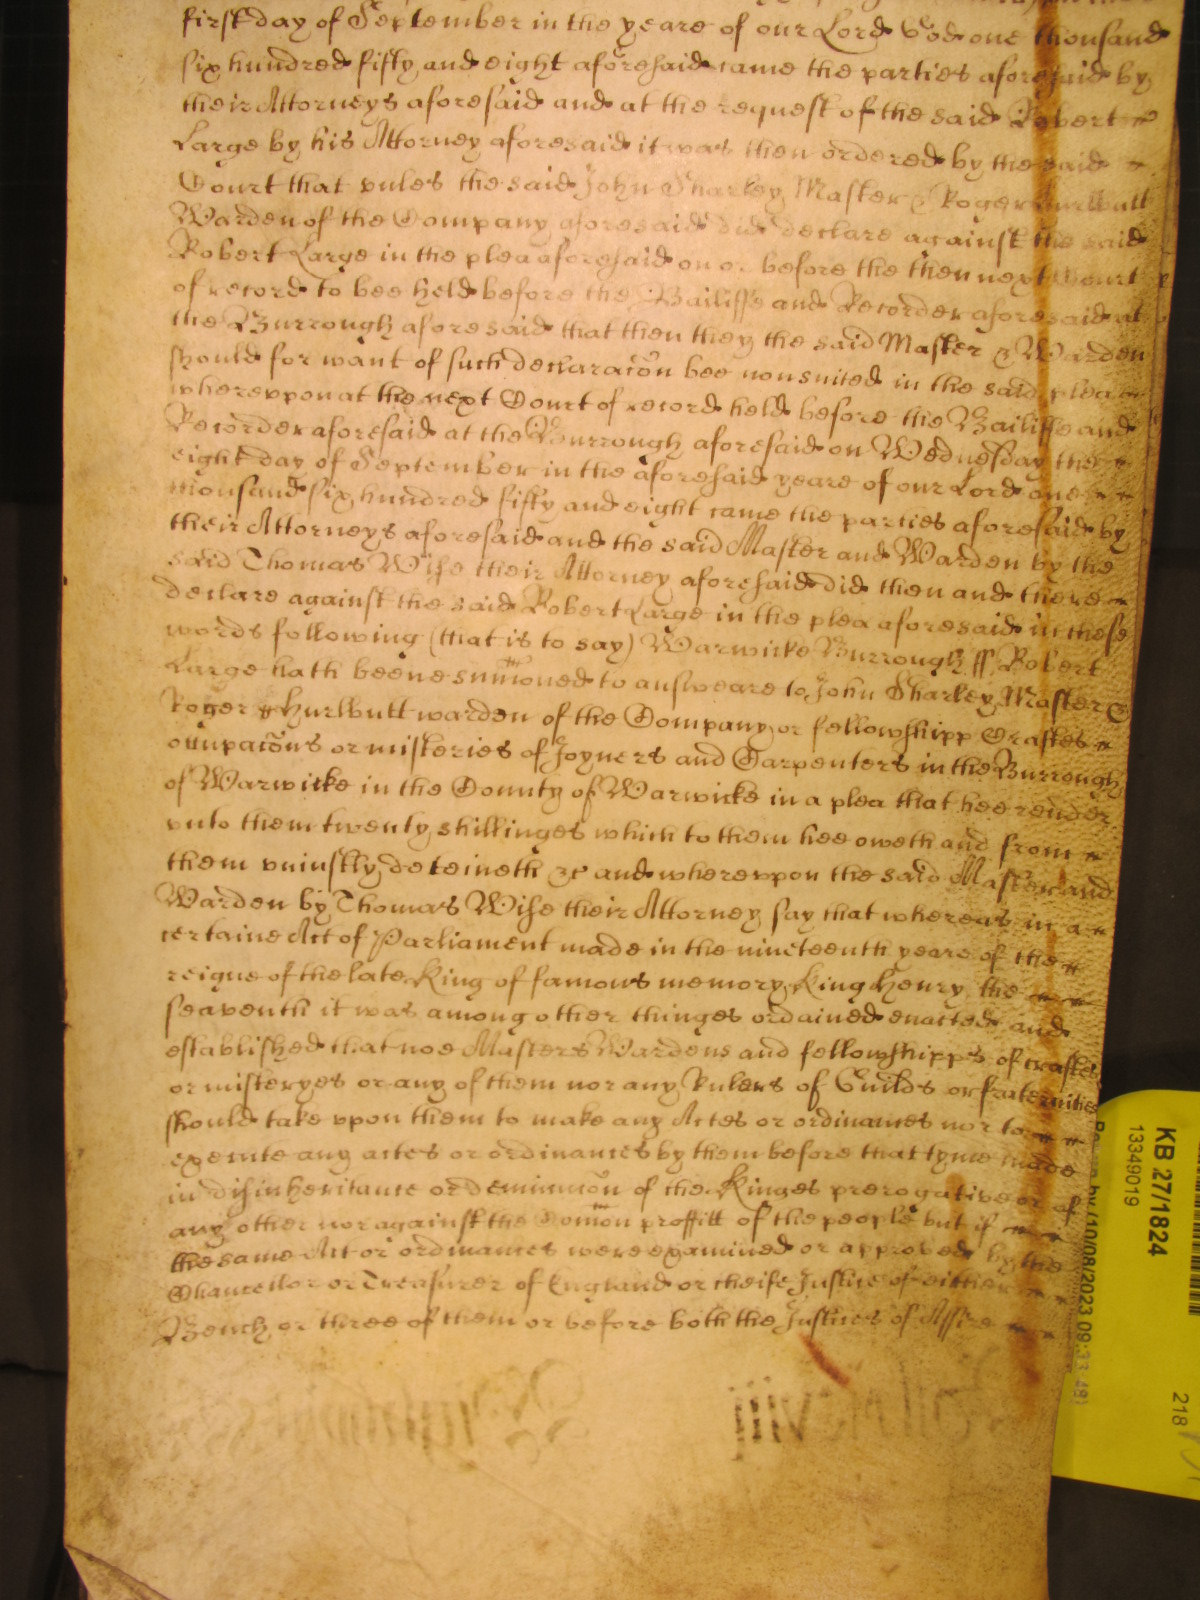 first day of September in the yeare of our Lord God one thousand
six hundred fifty and eight aforesaid came the parties aforesaid by
their Attorneys aforesaid and at the request of the said Robert
Large by his Attorney aforesaid it was then ordered by the said
Court that vnles the said John Sharley Master & Roger Hurlbutt
Warden of the Company aforesaid did declare against the said
Robert Large in the plea aforesaid on or before the then next Court
of record to bee held before the Bailiffe and Recorder aforesaid at
the Burrough aforesaid that then they the said Master & Warden
should for want of such declaracon bee nonsuited in the said plea
wherevpon at the next Court of record held before the Bailiffe and
Recorder aforesaid at the Burrough aforesaid on Wednesday the
eight day of September in the aforesaid yeare of our Lord one
thousand six hundred fifty and eight came the parties aforesaid by
their Attorneys aforesaid and the said Master and Warden by the
said Thomas Wise their Attorney aforesaid did then and there
declare against the said Robert Large in the plea aforesaid in these
words following (that is to say) Warwicke Burrough ss Robert
Large hath beene sumoned to answeare to John Sharley Master &
Roger Hurlbutt warden of the Company or fellowshipp Craftes
occupacons or misteries of Joyners and Carpenters in the Burrough
of Warwicke in the County of Warwicke in a plea that hee render
vnto them twenty shillinges which to them hee oweth and from
them vniustly deteineth &c and wherevpon the said Master and
Warden by Thomas Wise their Attorney say that whereas in a
certaine Act of Parliament made in the nineteenth yeare of the
reigne of the late King of famous memory King Henry the
seaventh it was among other thinges ordained enacted and
established that noe Masters Wardens and fellowshipps of craftes
or misteryes or any of them nor any Rulers of Guilds or fraternities
should take vpon them to make any Actes or ordinances nor to
execute any actes or ordinances by them before that tyme made
in disinheritance or deminucon of the Kinges prerogative or of
any other nor against the comon proffitt of the people but if
the same Act or ordinances were examined or approved by the
Chancellor or Treasurer of England or cheife Justice of either
Bench or three of them or before both the Justices of Assise
KB 27/1824
13349019
10/08/2023 09:33:48)
218